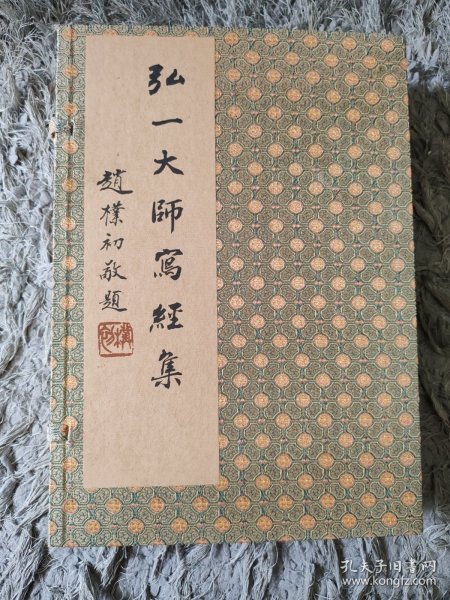 弘一大師寫經集
趙樸初敬題
樸初
孔夫子旧书网
www.kongfz.com